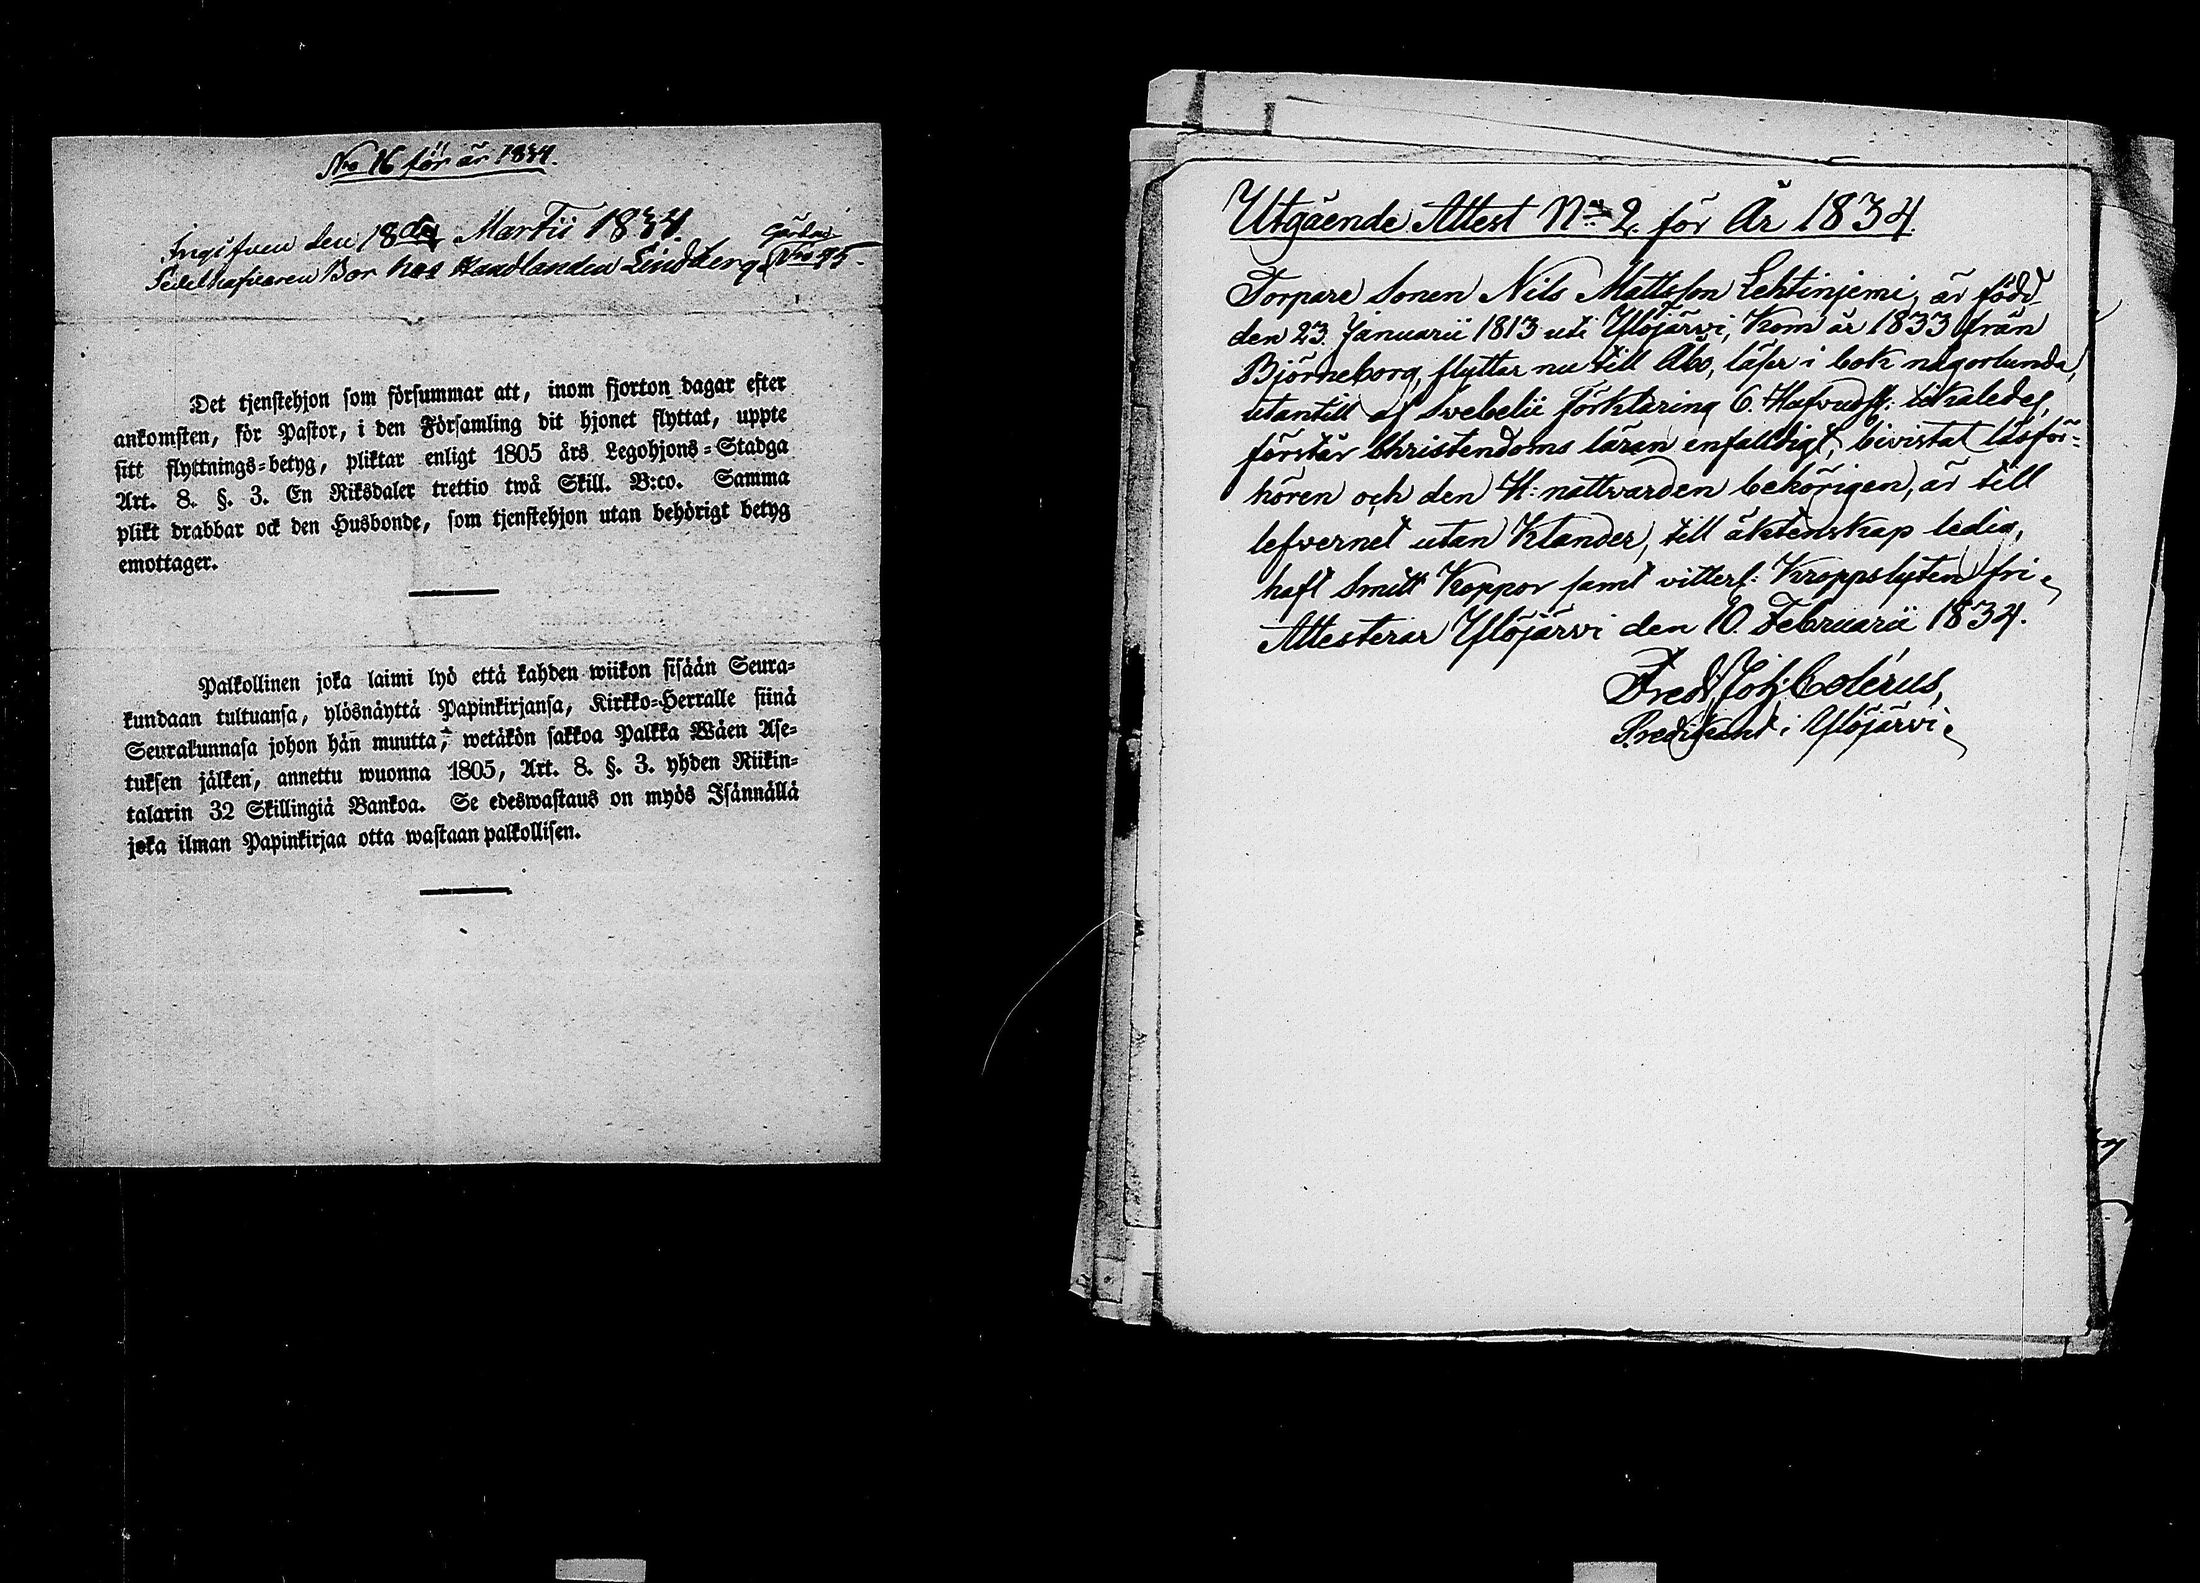 No 16 för år 1834.
Ingifven den 18de Martii 1834.
Sedelhafvaren Bor hos Handlanden Lindberg, Gården No 95.
Det tjenstehjon som försummar att, inom fjorton dagar efter
ankomsten, för Pastor, i den Församling dit hjonet flyttat, uppte
sitt flyttnings=betyg, pliktar enligt 1805 års Legohjons=Stadga
Art. 8. §. 3. En Riksdaler trettio twå Skill. B:co. Samma
plikt drabbar ock den Husbonde, som tjenstehjon utan behörigt betyg
emottager.
Palkollinen joka laimi lyö että kahden wiikon sisään Seura=
kundaan tultuansa, ylösnäyttä Papinkirjansa, Kirkko=Herralle siinä
Seurakunnasa johon hän muutta, wetäkön sakkoa Palkka Wäen Ase=
tuksen jälken, annettu wuonna 1805, Art. 8. §. 3. yhden Riikin=
talarin 32 Skillingiä Bankoa. Se edeswastaus on myös Isännällä
joka ilman Papinkirjaa otta wastaan palkollisen.
Utgående Attest No 2. för År 1834.
Torpare Sonen Nils Mattsson Lehtinjemi, är född
den 23. Januarii 1813 uti Ylöjärvi, Kom år 1833 från
Björneborg, flyttar nu till Åbo, läser i bok någorlunda,
utantill af Svebelii Förklaring 6. Hufvudst: likaledes,
förstår Christendoms läran enfaldigt, bivistat läsför-
hören och den H: nattvarden behörigen, är till
lefvernet utan Klander, till äktenskap ledig,
haft Smitt Koppor samt vitterl: Kroppslyten fri.
Attesterar Ylöjärvi den 10. Februarii 1834.
Fred. Joh: Colérus,
Predikant i Ylöjärvi.